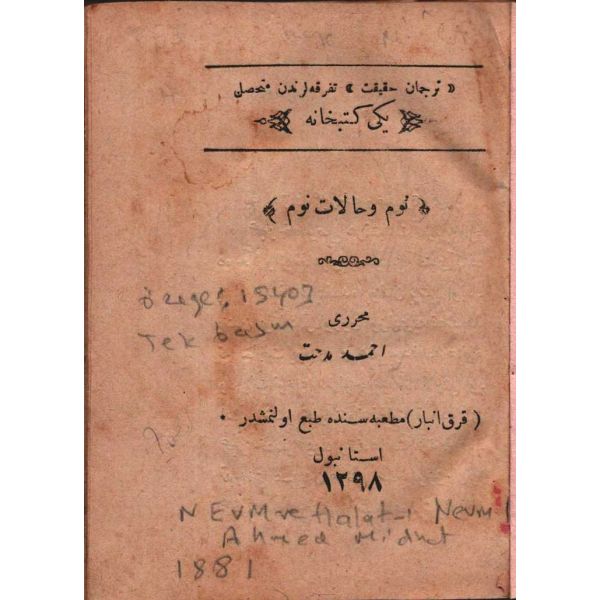 « ترجمان حقيقت » تفرقه لرندن متحصل
يكى كتبخانه
نوم و حالات نوم
Özege; 15403
Tek basım
محررى
احمد مدحت
( قرق انبار ) مطبعه سنده طبع اولنمشدر ٠
استانبول
١٢٩٨
NEVM ve Halat-ı Nevm
Ahmed Midhat
1881